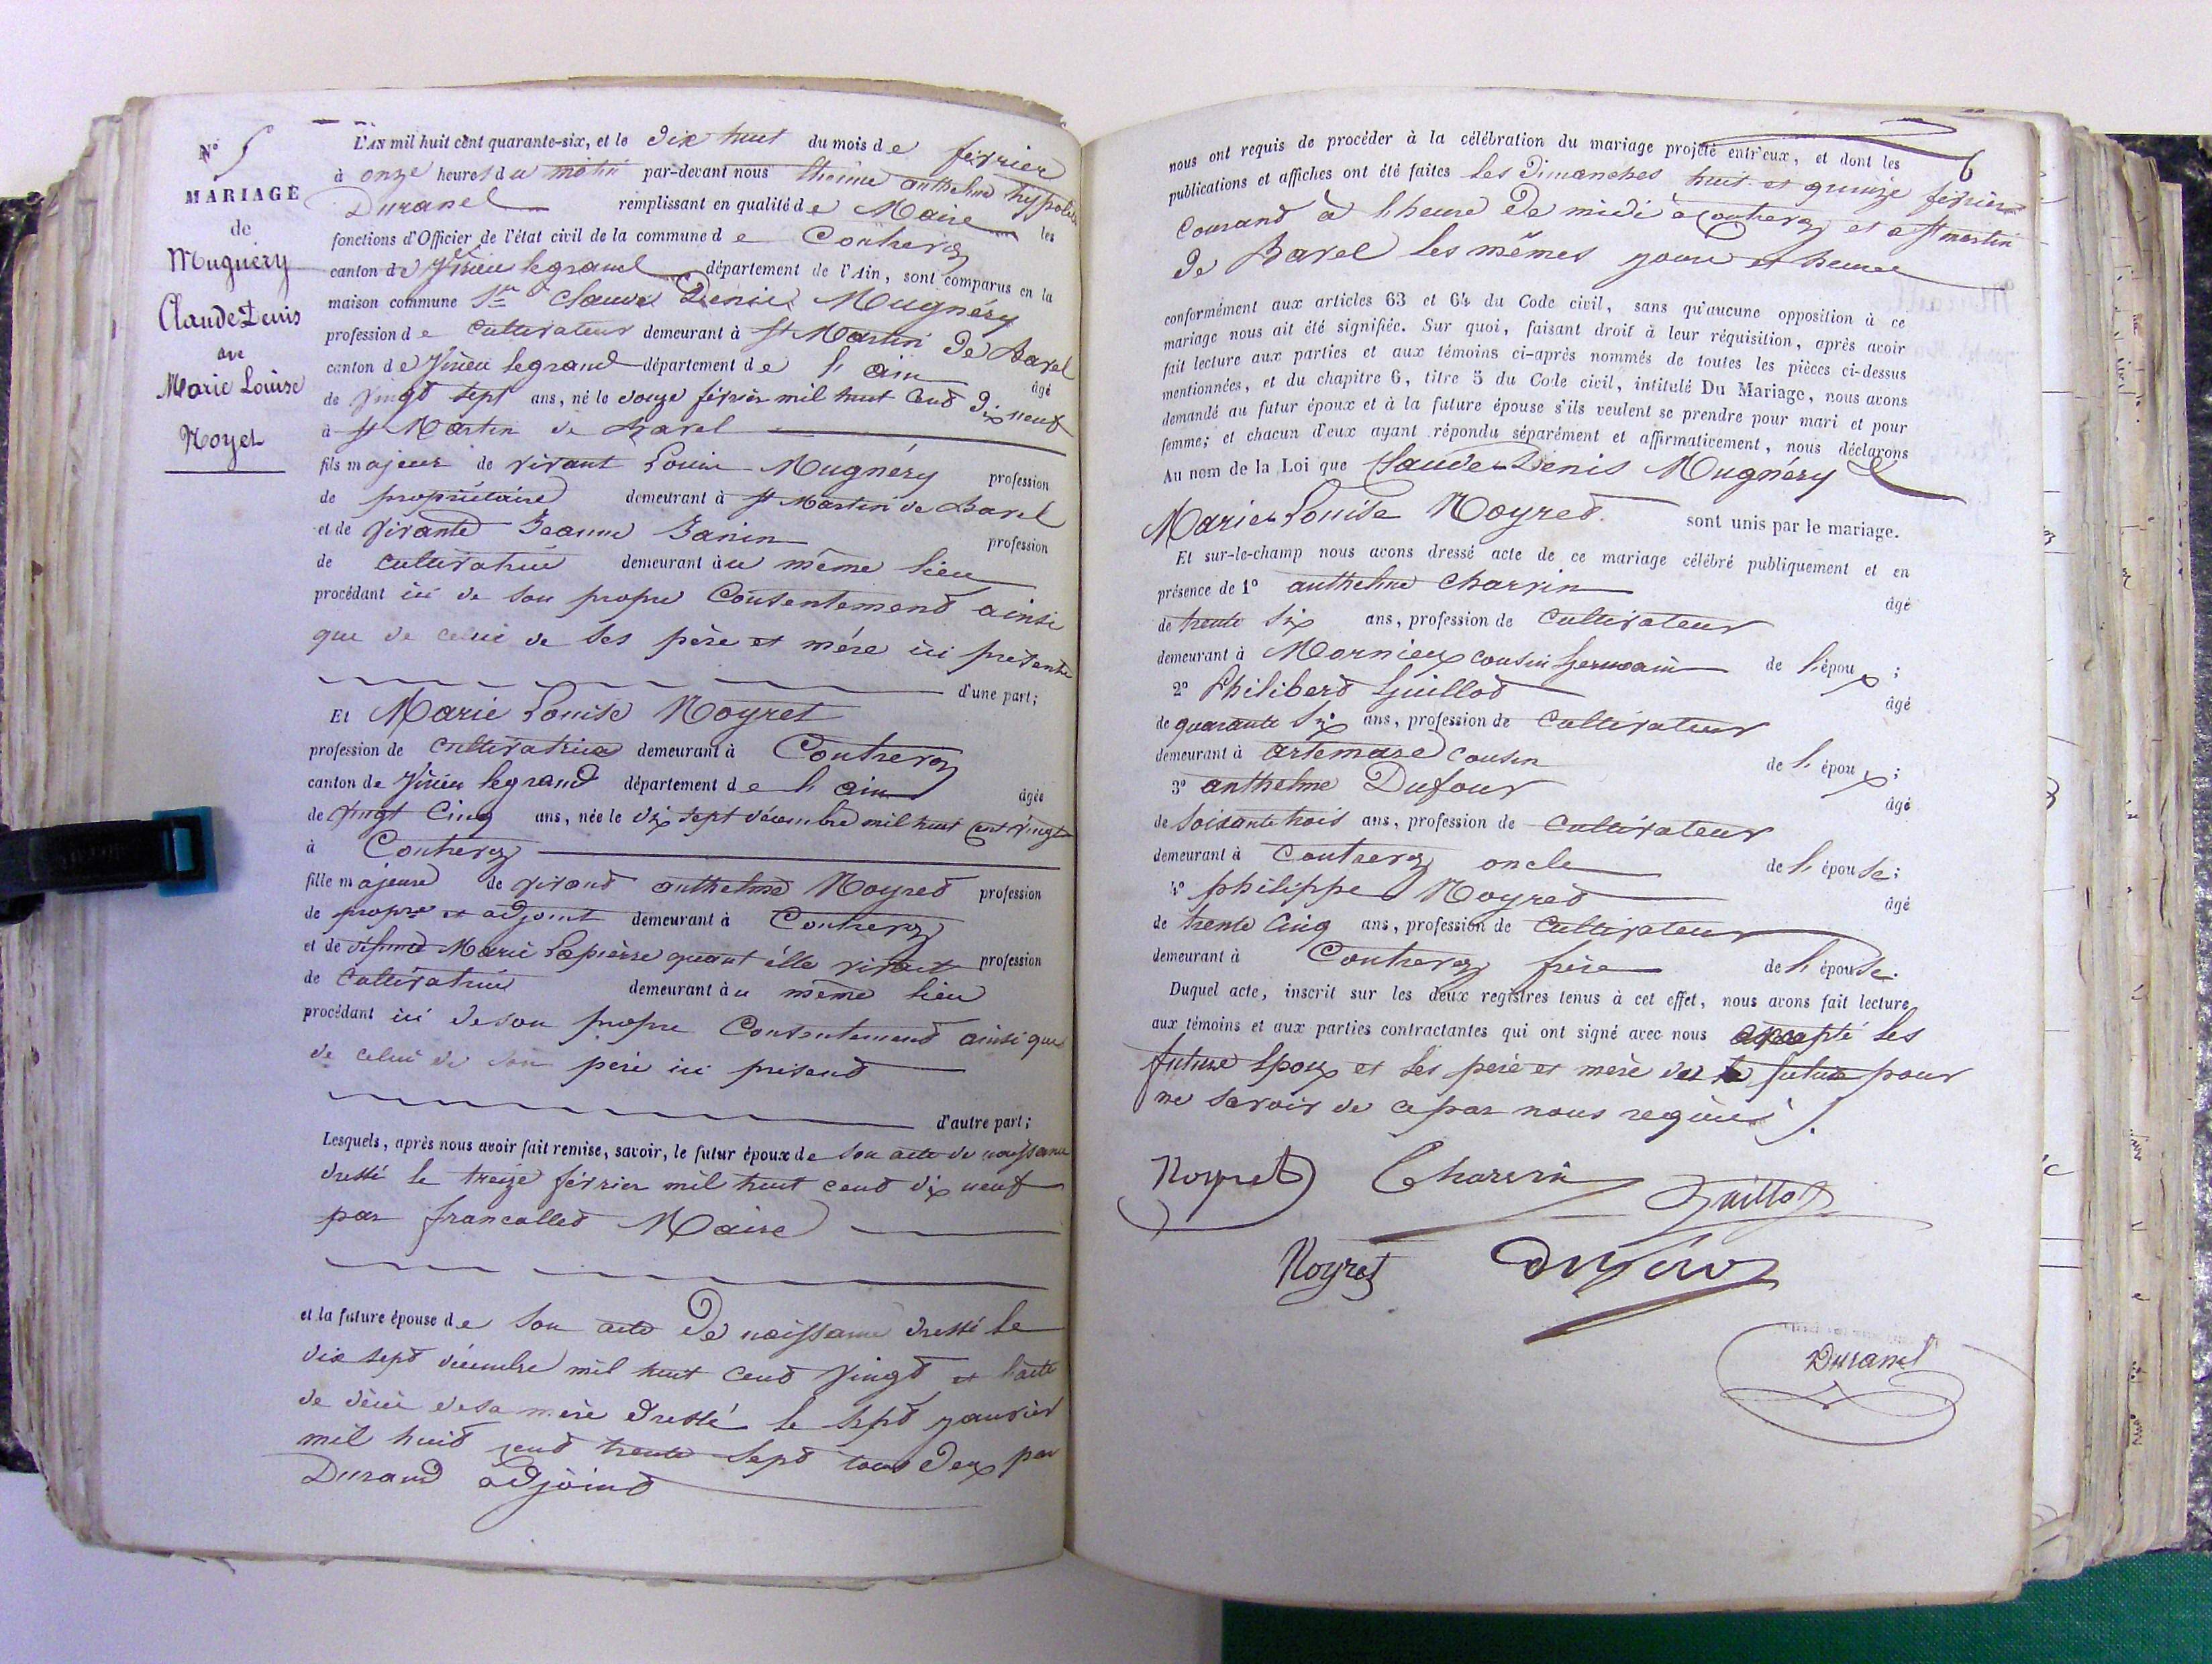 No 5
MARIAGE
de
Mugnéry
Claude Denis
ave
Marie Louise
Noyet
L'AN mil huit cent quarante-six, et le dix huit du mois de février
à onze heures du matin par-devant nous anthelme hypolite
Durand remplissant en qualité de Maire les
fonctions d'Officier de l'état civil de la commune de Contrevoz
canton de Virieu legrand département de l'Ain, sont comparus en la
maison commune Sr Claude Denis Mugnéry
profession de cultivateur demeurant à St Martin de Bavel
canton de Virieu legrand département de l'ain âgé
de vingt sept ans, né le douze février mil huit cend dix neuf
à St Martin de Bavel
fils majeur de vivant Louis Mugnéry profession
de propriétaire demeurant à St Martin de Bavel
et de vivante Jeanne Janin profession
de cultivatrice demeurant au même lieu
procédant ici de son propre Consentemend ainsi
que de celui de ses père et mére ici présents
d'une part;
Et Marie Louise Noyret
profession de cultivatrice demeurant à Contrevoz
canton de Virieu legrand département de l'ain âgée
de vingt Cinq ans, née le dix sept décembre mil huit cent vingt
à Contrevoz
fille majeure de vivand anthelme Noyred profession
de propre et adjoint demeurant à Contrevoz
et de défunte Marie Lapierre quant élle vivait profession
de Cultivatrice demeurant au même lieu
procédant ici deson propre Consentemend ainsi que
de celui de son père ici présend
d'autre part;
Lesquels, après nous avoir fait remise, savoir, le futur époux de son acte de naissance
dressé le treize février mil huit cend dix neuf
par francalled Maire
et la future épouse de son acte De naissance dressé le
dix sept décembre mil huit cend vingd et l'acte
de décè desa mère dressé le sept janvier
mil huid cend trente sept tous deux par
Durand adjoind
6
nous ont requis de procéder à la célébration du mariage projeté entr'eux, et dont les
publications et affiches ont été faites les dimanches huit et quinze février
Courand à l'heure de midi à Contrevoz et a St martin
de Bavel les mêmes jours et heures
conformément aux articles 63 et 64 du Code civil, sans qu'aucune opposition à ce
mariage nous ait été signifiée. Sur quoi, faisant droit à leur réquisition, après avoir
fait lecture aux parties et aux témoins ci-après nommés de toutes les pièces ci-dessus
mentionnées, et du chapitre 6, titre 5 du Code civil, intitulé Du Mariage, nous avons
demandé au futur époux et à la future épouse s'ils veulent se prendre pour mari et pour
femme; et chacun d'eux ayant répondu séparément et affirmativement, nous déclarons
Au nom de la Loi que Claude Denis Mugnéry &
Marie Louise Noyred sont unis par le mariage.
Et sur-le-champ nous avons dressé acte de ce mariage célébré publiquement et en
présence de 1º anthelme Charvin âgé
de trente six ans, profession de Cultivateur
demeurant à Mornieux cousin germain de l'époux;
2º Philiberd Guillod âgé
de quarante six ans, profession de Cultivateur
demeurant à artemare cousin de l'époux;
3º anthelme Dufour âgé
de soixante trois ans, profession de Cultivateur
demeurant à Contrevoz oncle de l'épouse;
4º philippe Noyred âgé
de trente Cinq ans, profession de Cultivateur
demeurant à Contrevoz frère de l'épouse.
Duquel acte, inscrit sur les deux registres tenus à cet effet, nous avons fait lecture
aux témoins et aux parties contractantes qui ont signé avec nous excepté les
future époux et les père et mère de future pour
ne savoir de ce par nous requis
Noyret Charvin Guillot
Noyret Dufour
Durand